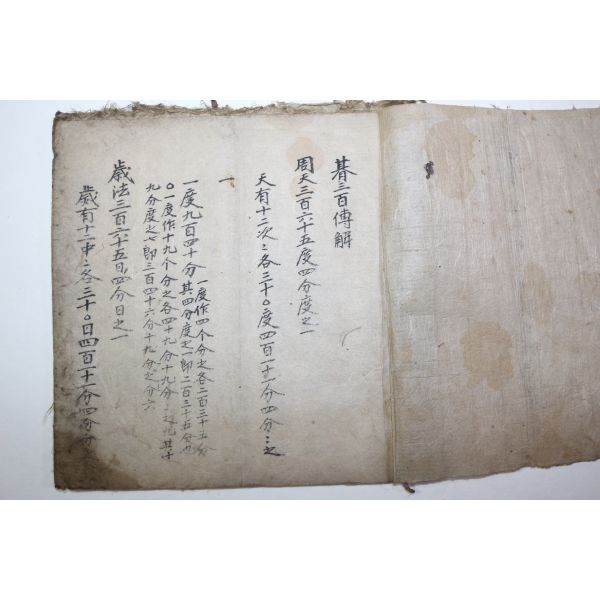 朞三百傳解
周天三百六十五度四分度之一
天有十二次〻各三十〇度四百一十一分四分〻之
一
一度九百四十分 一度作四个分之各二百三十五分
其四分度之一卽二百三十五分也
〇一度作十九个分之各四十九分十九分〻之九其十
九分度之七卽三百四十六分十九分之分六
歲法三百六十五日四分日之一
歲有十二中〻各三十〇日四百一十一分四分分